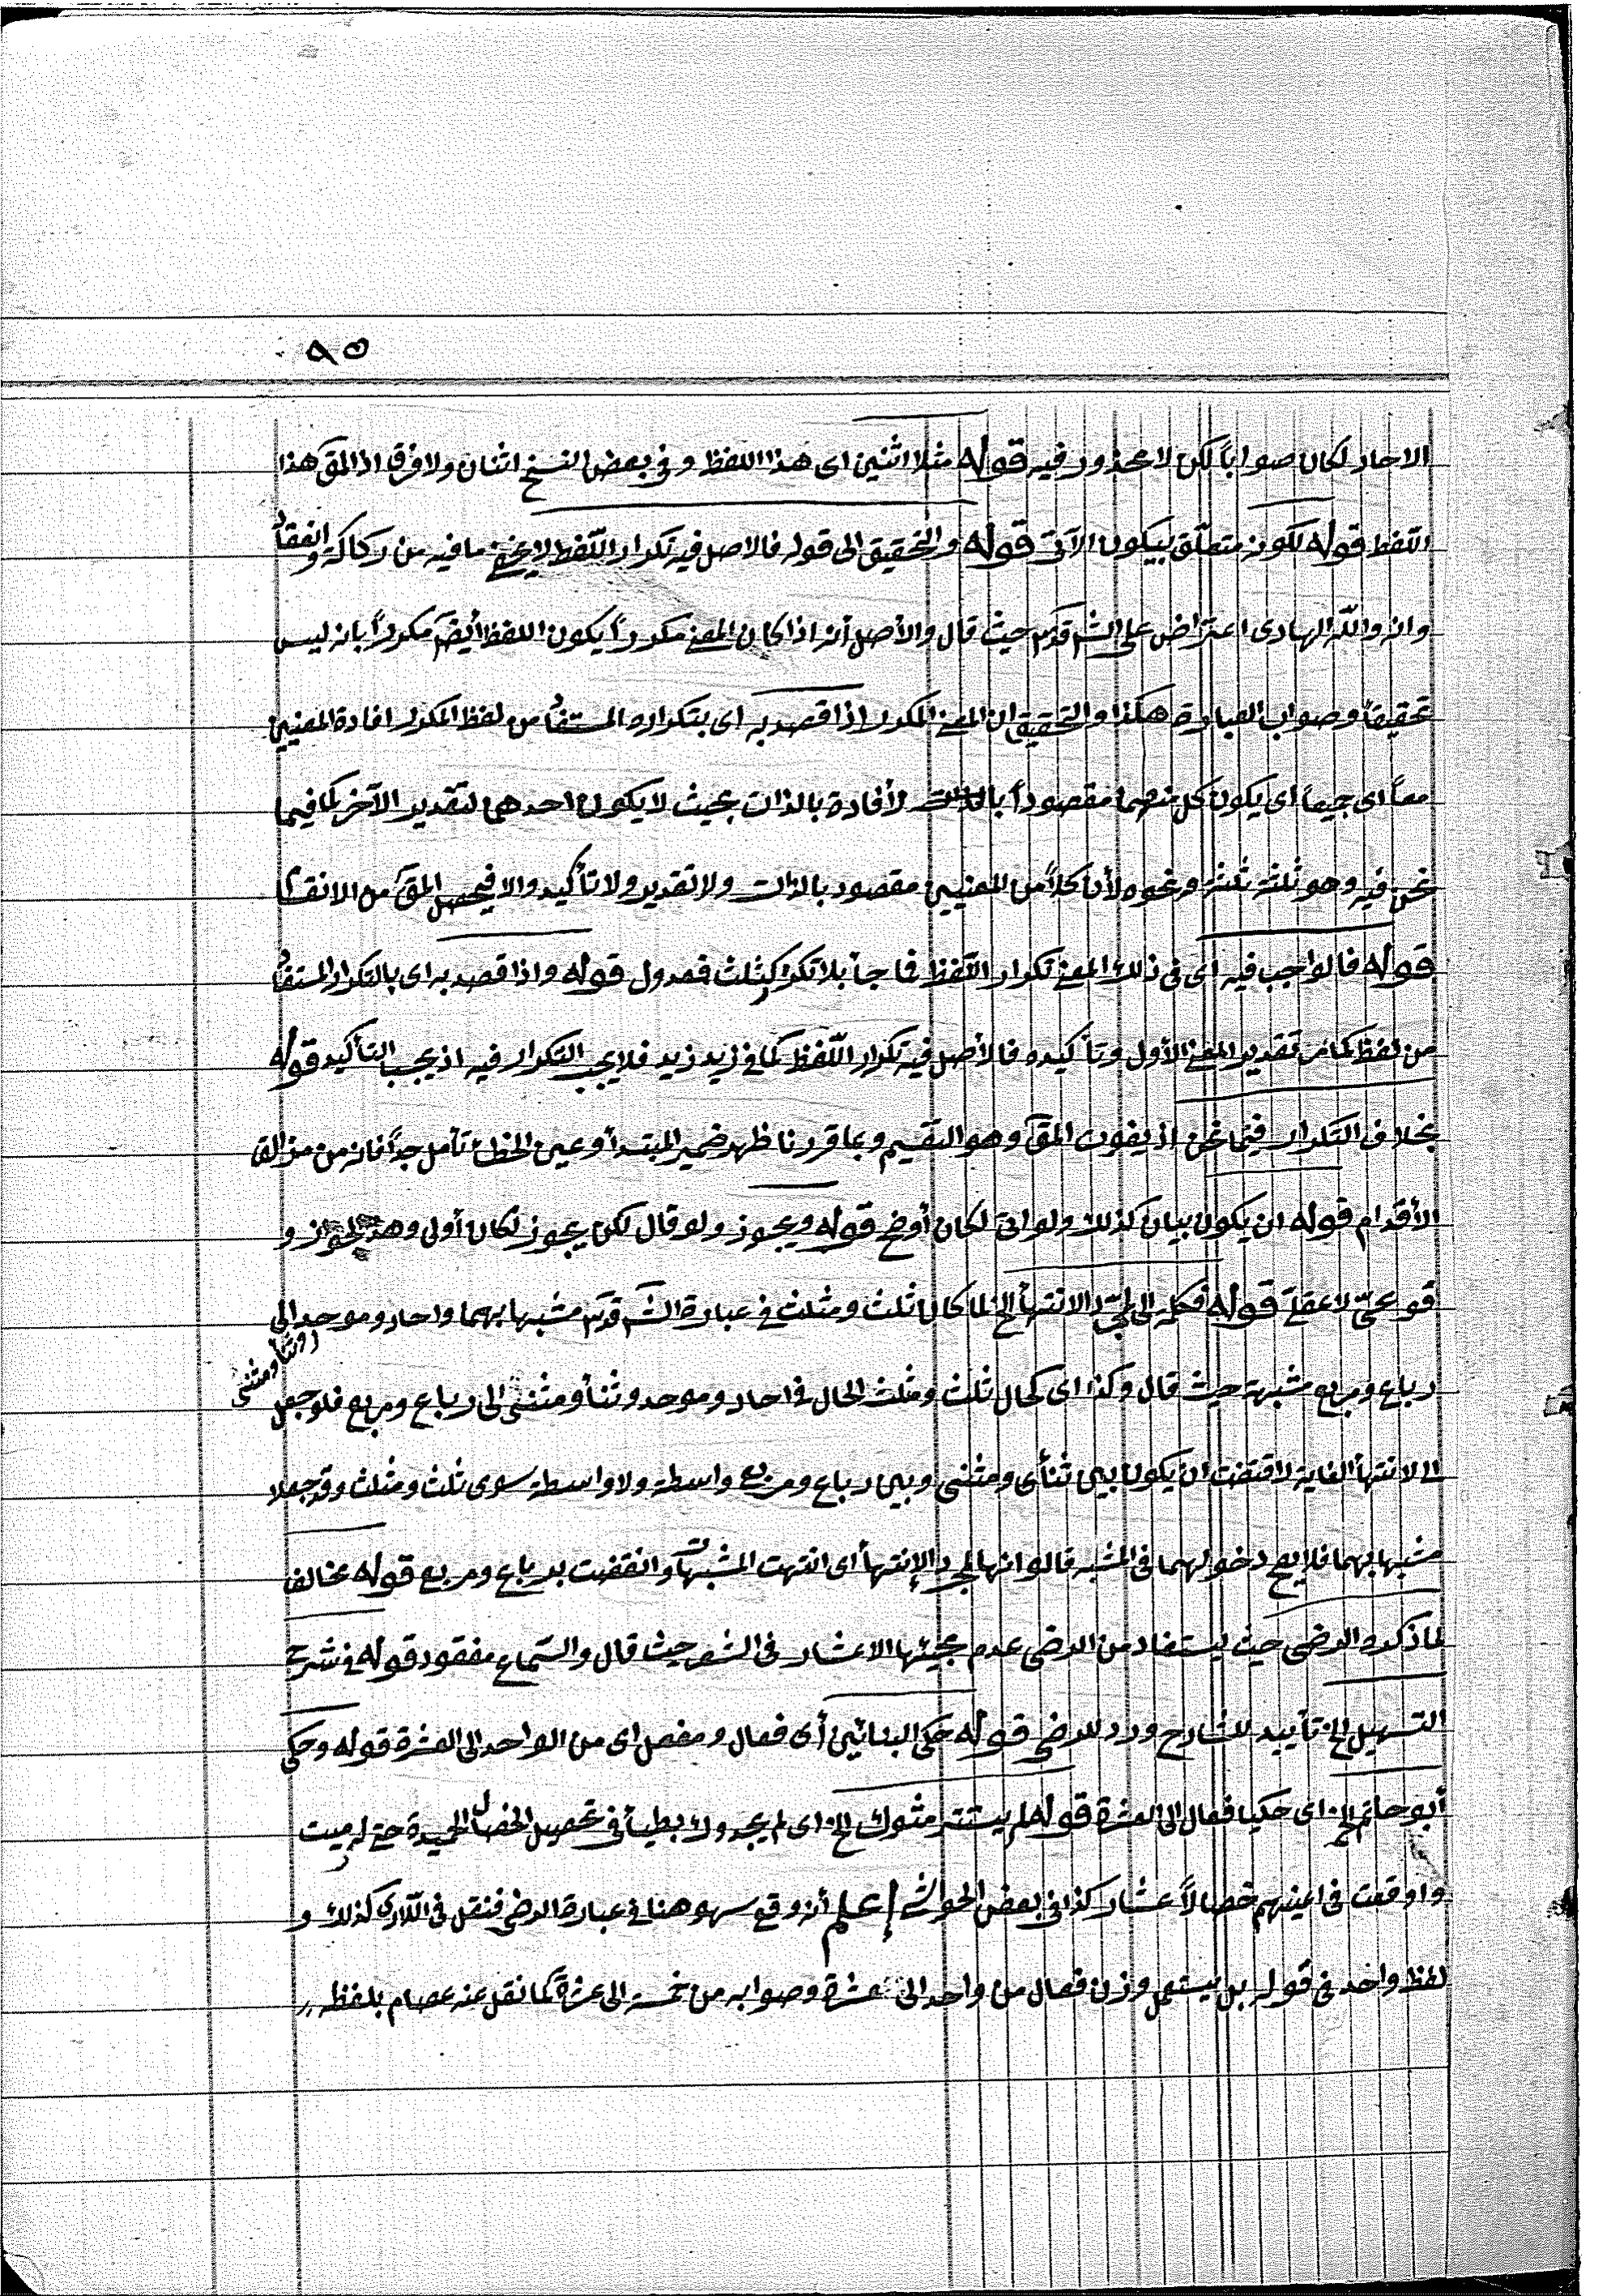 ٩٥
الاحاد لكان صواباً لكن لا محذور فيه قوله مثلا اثنين اى هذا اللفظ وفى بعض النسخ اثنان ولا فرق اذ المقَ هذا
اللّفظ قوله لكونه متعلّق بيكون الآتى قوله والتحقيق الى قوله فالاصل فيه تكرار اللّفظ لا يخفى ما فيه من ركاكة و
وانه واللّه الهادى اعتراض على الشَ قدّس حيث قال والأصل أنه اذا كان المعنى مكرراً يكون اللفظ أيضَ مكرراً بانه ليس
تحقيقاً وصواب العبارة هكذا والتحقيق ان المعنى المكرر اذا قصد به اى بتكراره المستفاد من لفظ المكرر افادة المعنيين
معاً اى جميعاً اى يكون كل منهما مقصوداً لأفادة بالذات بحيث لا يكون احدهى لتقدير الآخر كما فيما
نحن فيه وهو ثلثة ثلثة ونحوه لأن كلاً من المعنيين مقصود بالذات ولا تقدير ولا تأكيد والا فيحصل المقَ من الانقسا
قوله فالواجب فيه اى فى ذلك المعنى تكرار اللّفظ فما جأ بلا تكرر كثلث فعدول قوله واذا قصد به اى بالتكرار المستفا
من لفظ كما مر تقدير المعنى الأول وتأكيده فالأصل فيه تكرار اللّفظ كما فى زيد زيد فلا يجب التكرار فيه اذ يجب التأكيد قوله
بخلاف التكرار فيما نحن اذ يفوت المقَ وهو التقسيم وبما قررنا ظهر ضمير المبتدأ وعين الخطأ تأمل جداً فانه من مزالق
الأقدام قوله ان يكون بيان كذلك ولو اتى لكان أوضح قوله ويجوز ولو قال لكن يجوز لكان أولى وهذ الجواز و
قوعىّ لا عقلىّ قوله فكلمة الى لمجرّد الانتهأ الخ لما كان ثلث ومثلث فى عبارة الشَ قدّس مشبها بهما واحاد وموحد الى
أو ثنأ ومثنى
رباع ومربع مشبهة حيث قال وكذا اى كحال ثلث ومثلث الحال فى احاد وموحد وثنأ ومثنى الى رباع ومربع فلو جعل
الانتهأ الغاية لاقتضت ان يكون بين ثنأى ومثنى وبين رباع ومربع واسطة ولا واسطة سوى ثلث ومثلث وقد جعلا
مشبها بهما فلا يصح دخولهما فى المشبه قالوا انها لمجرد الإنتهأ اى انتهت المشبهات وانقضت برباع ومربع قوله مخالف
لما ذكره الرضى حيث يستفاد من الرضى عدم مجيئها الاعشار فى الشعر حيث قال والسّماع مفقود قوله فى شرح
التسهيل الخ تأييد للشارح وردد للرضى قوله حكى البنائين أى فعال ومفعل اى من الواحد الى العشرة قوله وحكى
أبو حاتم الخ اى حكيا فعال الى العشرة قوله فلم يستتر مثوك الخ اى لم يجدوك بطيأً فى تحصيل الخصال الحميدة حتى رميت
واوقعت فى اعينهم خصالاً عشار كذا فى بعض الحواشى إعلم أنه وقع سهو هنا فى عبارة الرضى فنقل فى اللارى كذلك و
لفظ واحد فى قوله بل يستعمل وزن فعال من واحد الى عشرة وصوابه من خمسة الى عشرة كما نقل عنه عصام بلفظه